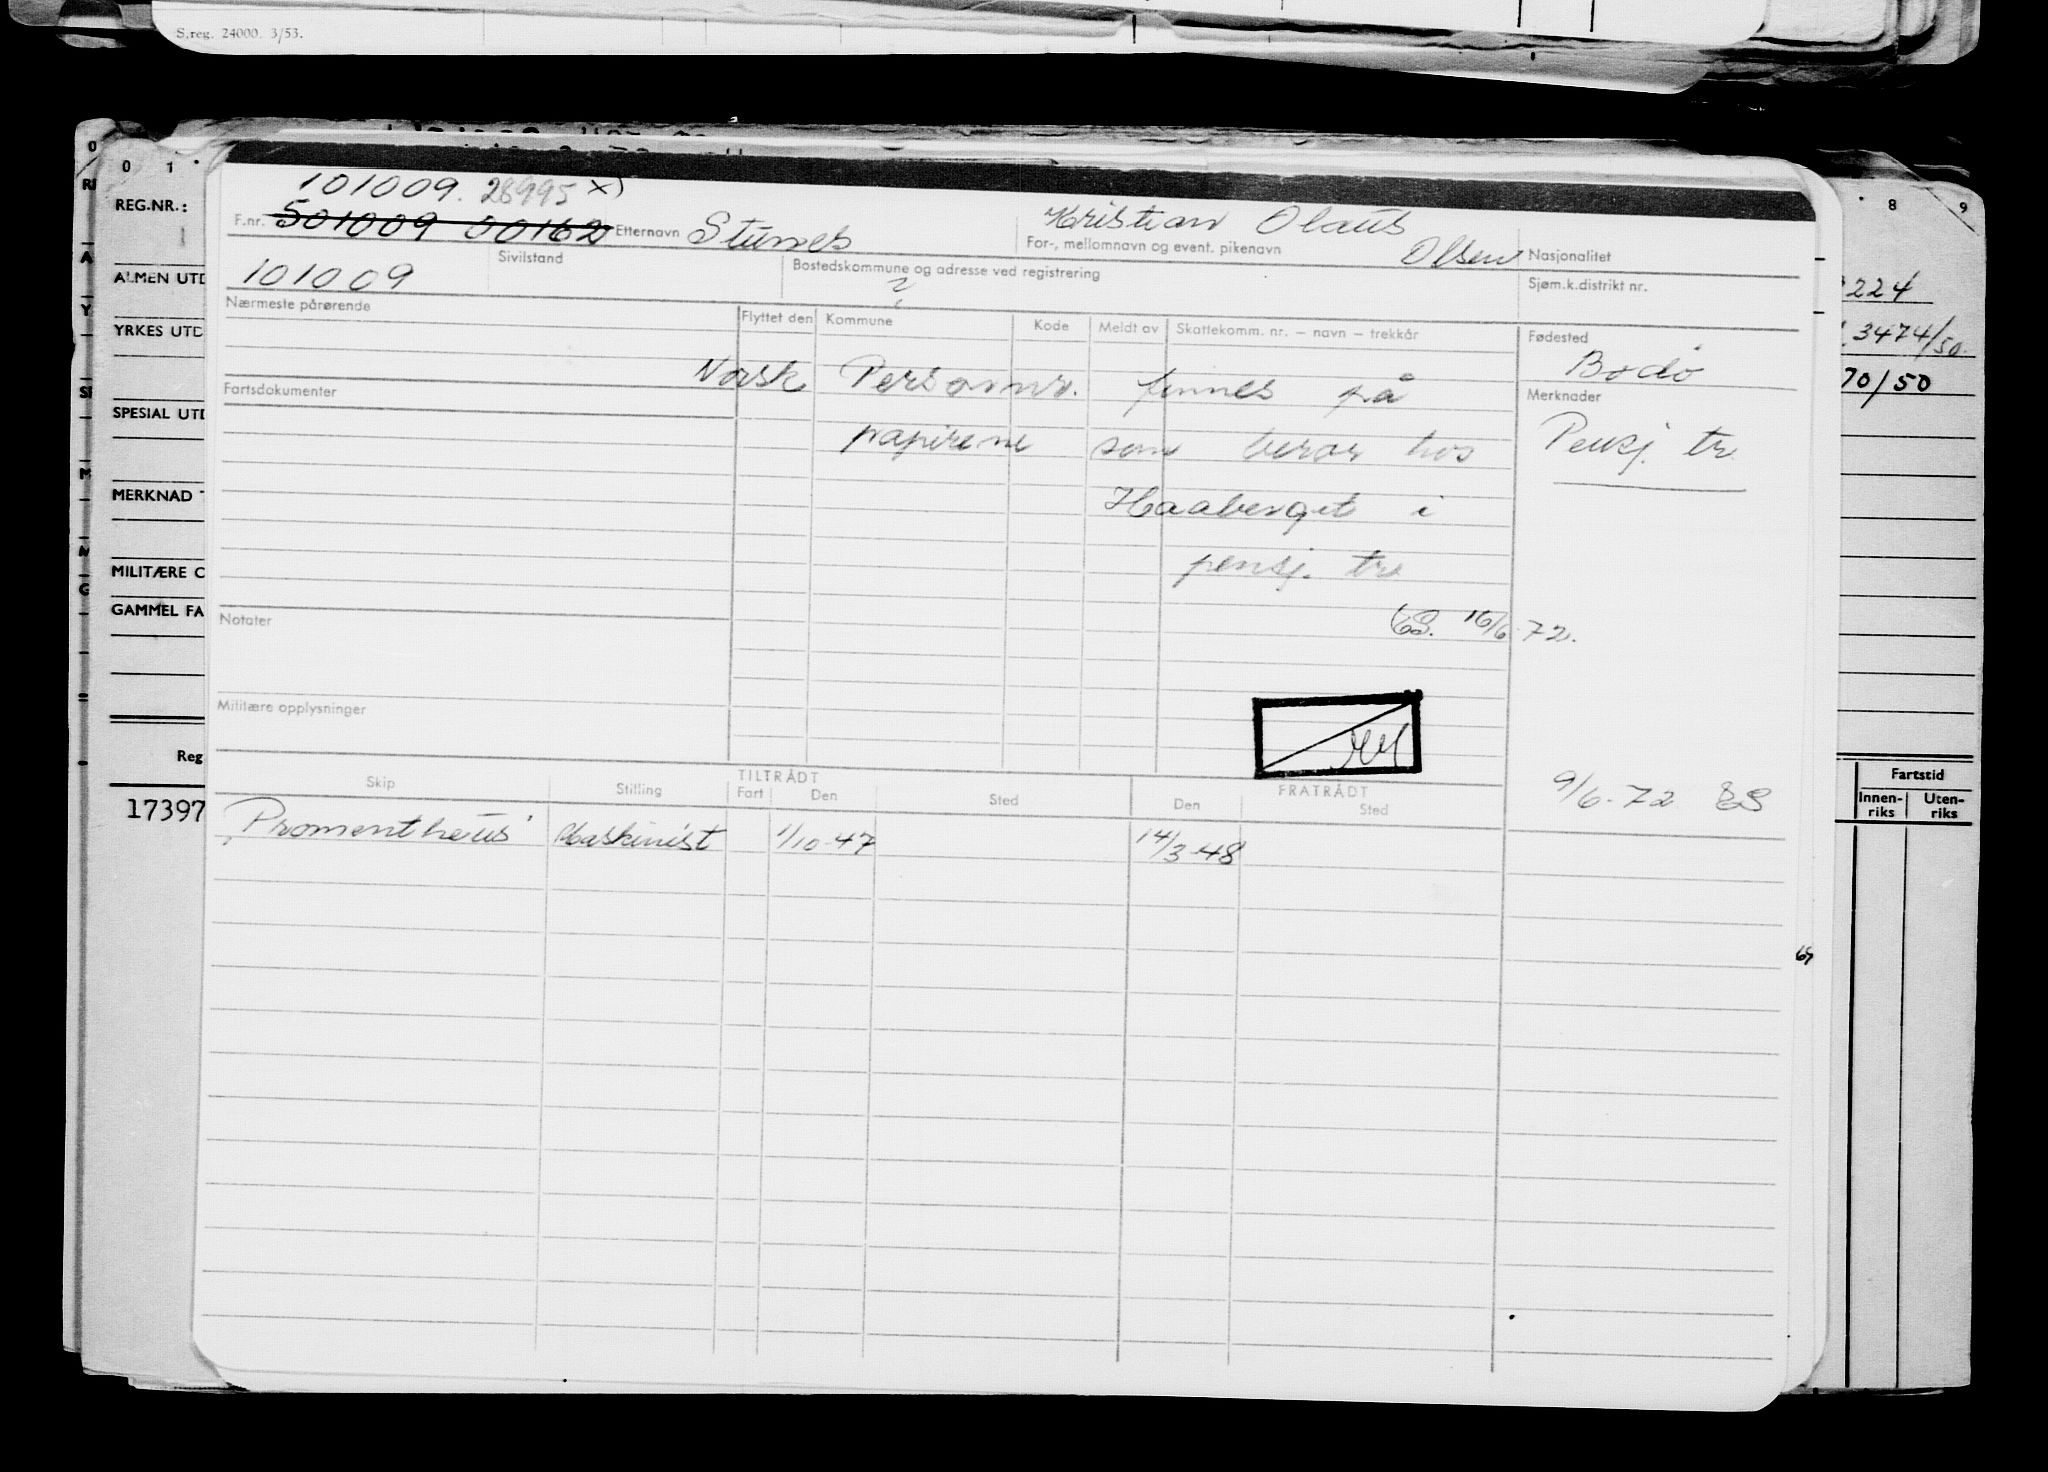 S.reg. 24000. 3/53.
0 1
8 9
REG.NR.:
ALMEN UTD
YRKES UTD
SPECIAL UTD
MERKNAD
MILITÆRE O
GAMMEL FA
Reg
17397
224
3474/50.
70/50
Fartstid
Innen-riks Uten-riks
101009. 28995 x)
F.nr. 501009 00162 Etternavn Stunes Kristian Olaus
For-, mellomnavn og event. pikenavn Olsen Nasjonalitet
101009 Sivilstand Bostedskommune og adresse ved registrering ? Sjøm.k.distrikt nr.
Nærmeste pårørende Flyttet den Kommune Kode Meldt av Skattekomm. nr. – navn – trekkår Fødested
Bodø
Norsk Personnr. finnes på
Fartsdokumenter Merknader
papirene som beror hos Pensj. tr.
Haaberget i
pensj. tr.
Notater
ES. 16/6-72.
Militære opplysninger
9/6-72 ES
TILTRÅDT FRATRÅDT
Skip Stilling Fart Den Sted Den Sted
"Promentheus" Maskinist 1/10-47 14/3-48